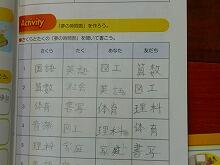 Activity 「夢の時間割」を作ろう。
さくらとたくの「夢の時間割」を聞いて書こう。
さくら たく あなた 友だち
1 国語 英語 図工 算数
2 算数 社会 英語 図工
3 体育 書写 体育 理科
音楽 図工 理科 体育
理科 家庭 家庭 書写